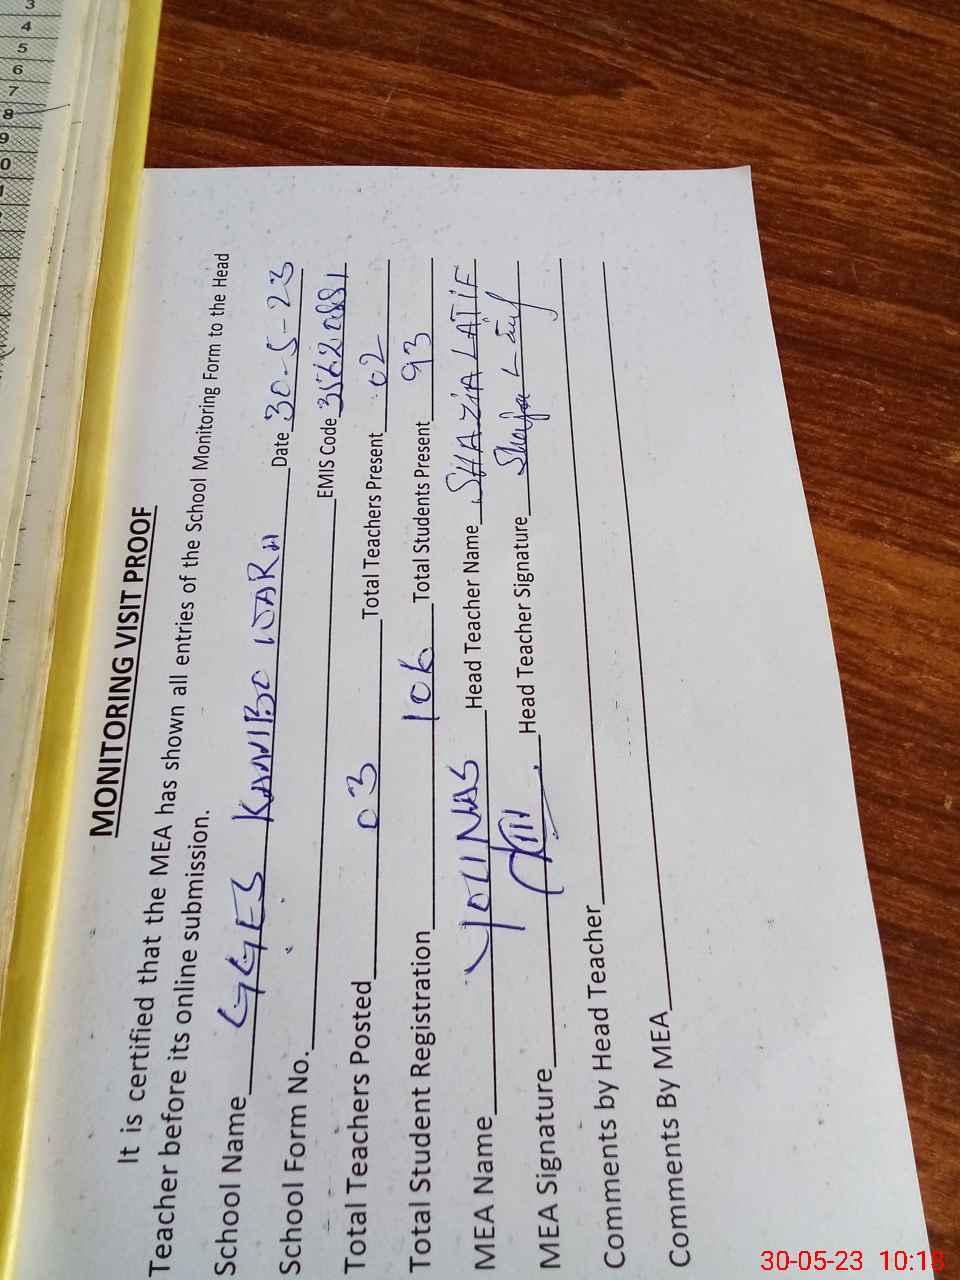 MONITORING VISIT PROOF
It is certified that the MEA has shown all entries of the School Monitoring Form to the Head
Teacher before its online submission.
School Name GGES KANNIBO WARA Date 30-5-23
School Form No. EMIS Code 35620881
Total Teachers Posted 03 Total Teachers Present 02
Total Student Registration 106 Total Students Present 93
MEA Name YOUNAS Head Teacher Name SHAZIA LATIF
MEA Signature Head Teacher Signature Shazia Latif
Comments by Head Teacher
Comments By MEA
3
4
5
6
7
8
9
0
30-05-23 10:18